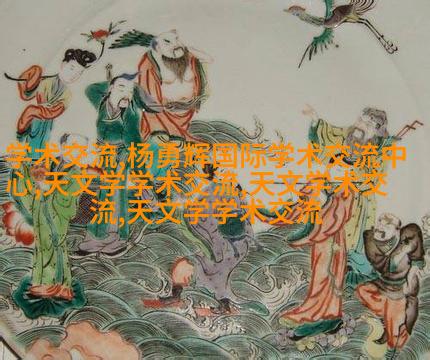 学术交流,杨勇辉国际学术交流中
心,天文学学术交流,天文学术交
流,天文学学术交流